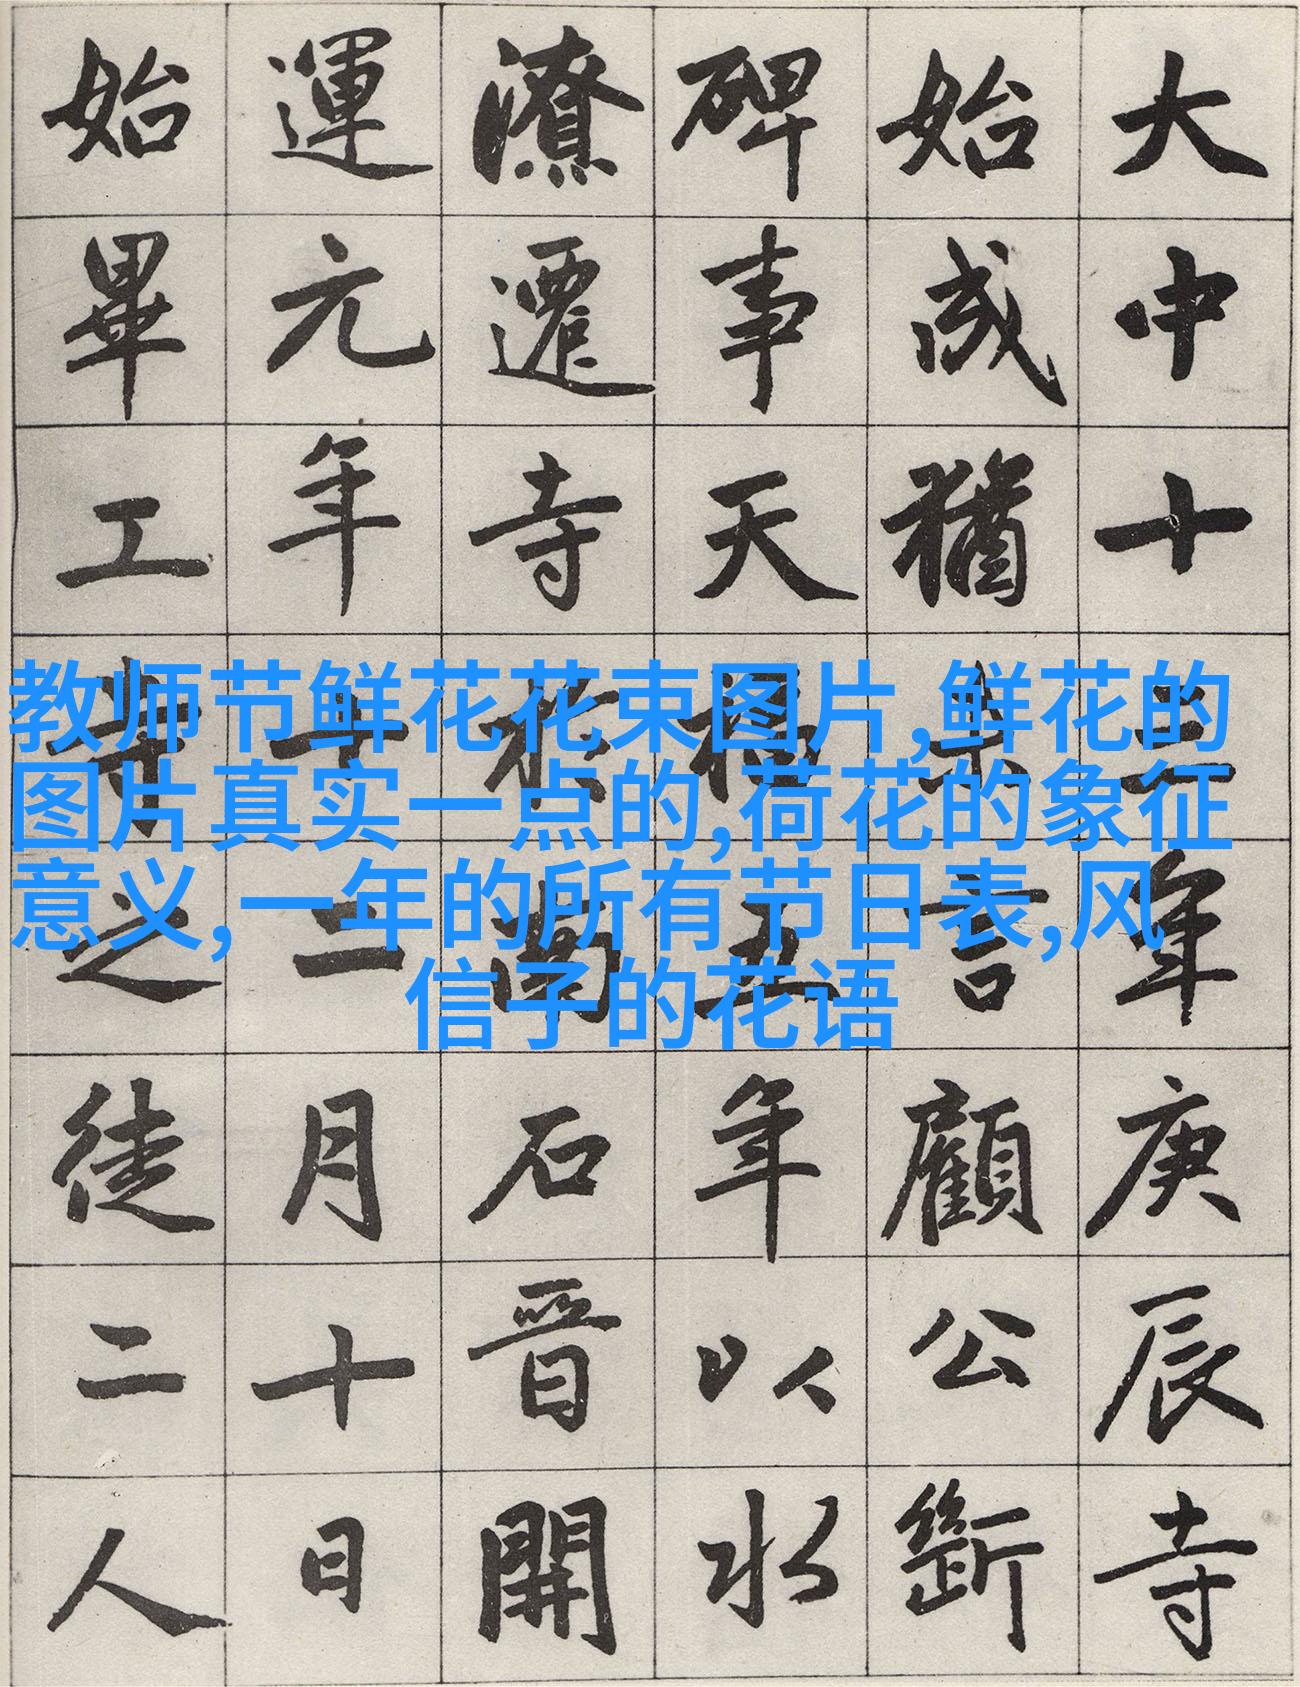 大中十三年庚辰寺
始成猶未言顧公
碑事天福五年以水
潦遷寺於石晉開
運元年十二月十日
始畢工寺之徒二人
教师节鲜花花束图片,鲜花的
图片真实一点的,荷花的象征
意义,一年的所有节日表,风
信子的花语